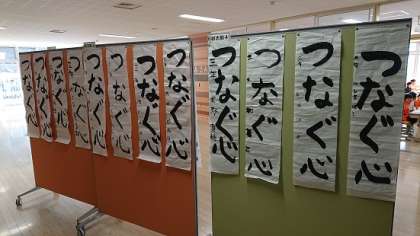 つなぐ心
つなぐ心
つなぐ心
つなぐ心
つなぐ心
つなぐ心
つなぐ心
つなぐ心
つなぐ心
つなぐ心
つなぐ心
つなぐ心